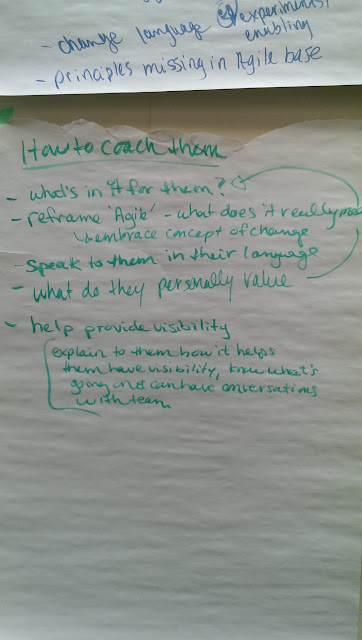 experiments!
- change language enabling
- principles missing in Agile base
How to coach them
- what's in it for them?
- reframe 'Agile' - what does it really mean
embrace concept of change
- Speak to them in their language
- what do they personally value
- help provide visibility
explain to them how it helps
them have visibility, know what's
going on & can have conversations
with team.